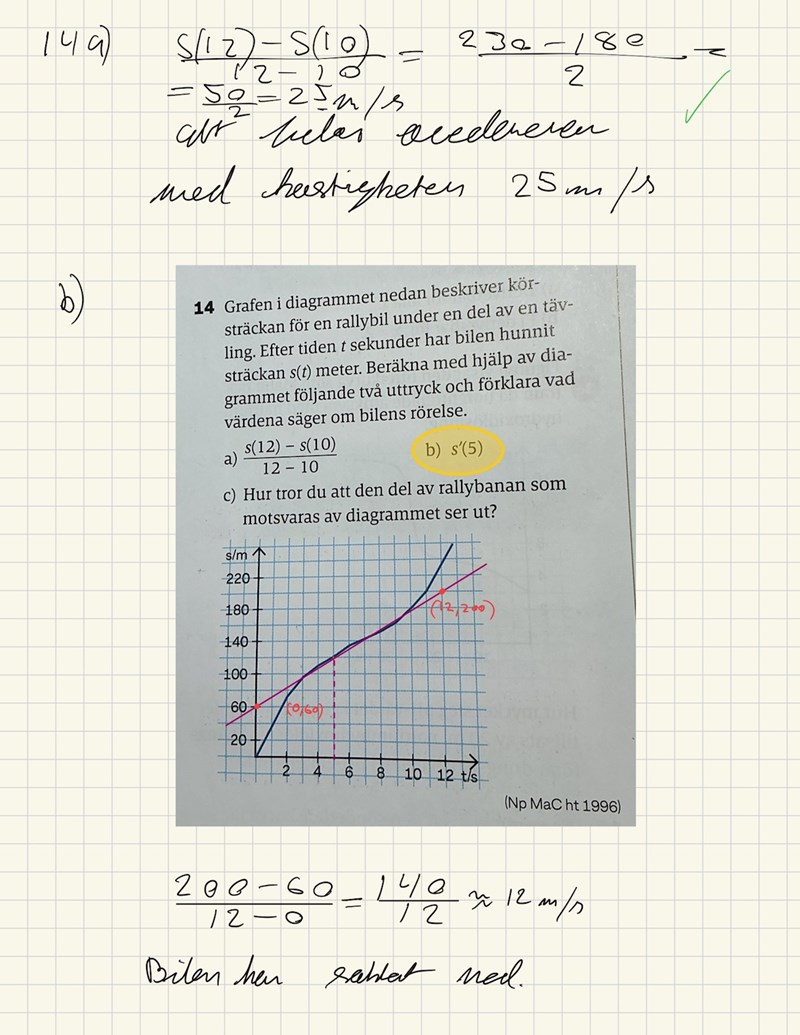 14a) S(12)-S(10) / 12-10 = 230-180 / 2 =
= 50/2 = 25 m/s
med hastigheten 25 m/s
b)
14 Grafen i diagrammet nedan beskriver kör-
sträckan för en rallybil under en del av en täv-
ling. Efter tiden t sekunder har bilen hunnit
sträckan s(t) meter. Beräkna med hjälp av dia-
grammet följande två uttryck och förklara vad
värdena säger om bilens rörelse.
a) s(12) – s(10) / 12 – 10 b) s′(5)
c) Hur tror du att den del av rallybanan som
motsvaras av diagrammet ser ut?
s/m
220
180
(12,200)
140
100
60 (0,60)
20
2 4 6 8 10 12 t/s
(Np MaC ht 1996)
200-60 / 12-0 = 140/12 ≈ 12 m/s
Bilen har ned.